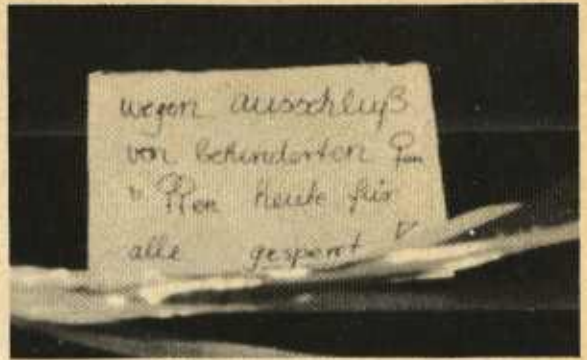 wegen ausschluß
von behinderten ♀en
u. ♀♀en heute für
alle gesperrt